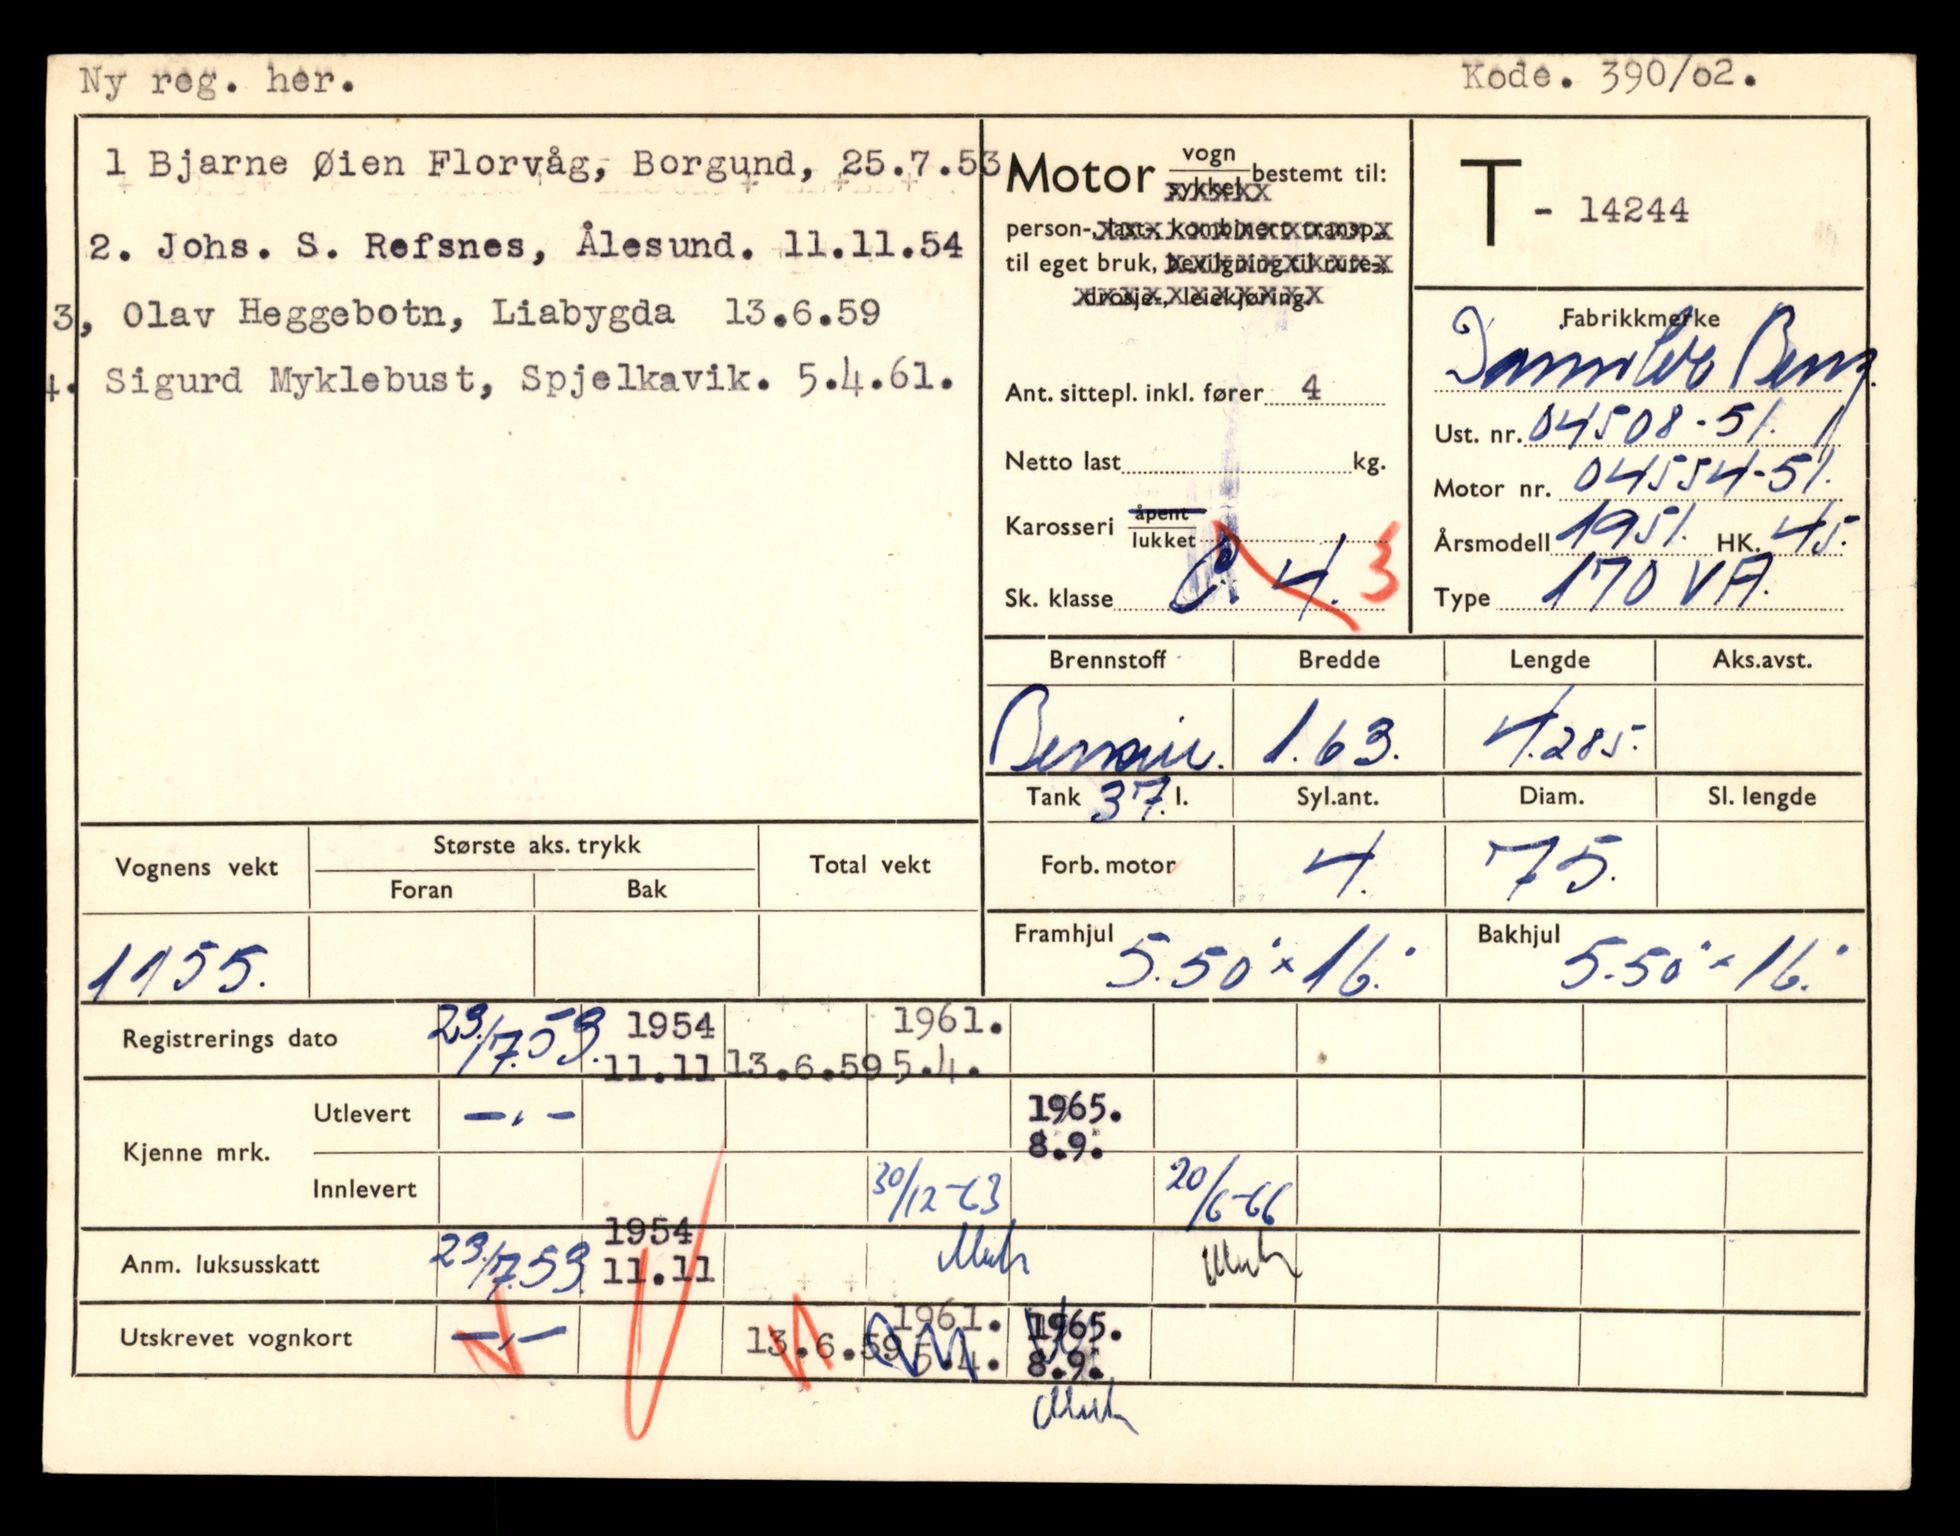 Ny reg. her.
Kode. 390/o2.
1 Bjarne Øien Florvåg, Borgund, 25.7.53
2. Johs. S. Refsnes, Ålesund. 11.11.54
3, Olav Heggebotn, Liabygda 13.6.59
4. Sigurd Myklebust, Spjelkavik. 5.4.61.
Motor vogn/sykkel bestemt til:
person-, last-, kombinert transp.,
til eget bruk, bevilgning til rute-,
drosje-, leiekjøring.
Ant. sittepl. inkl. fører 4
Netto last kg.
Karosseri åpent
lukket
Sk. klasse C. 4. 3
T - 14244
Fabrikkmerke
Daimler Benz.
Ust. nr. 04508-51.
Motor nr. 04554-51.
Årsmodell 1951. HK. 45.
Type 170 VA.
Brennstoff Bredde Lengde Aks.avst.
Bensin. 1.63. 4.285.
Tank 37. l. Syl.ant. Diam. Sl. lengde
Forb. motor 4. 75.
Framhjul 5.50" x 16." Bakhjul 5.50" x 16."
Vognens vekt Største aks. trykk Total vekt
Foran Bak
1155.
Registrerings dato 23./7.53. 1954 11.11 13.6.59 1961. 5.4.
Kjenne mrk. Utlevert —,,— 1965. 8.9.
Innlevert 30/12-63 20/6-66
Anm. luksusskatt 23./7.53. 1954 11.11
Utskrevet vognkort —,,— 13.6.59 1961. 5.4. 1965. 8.9.